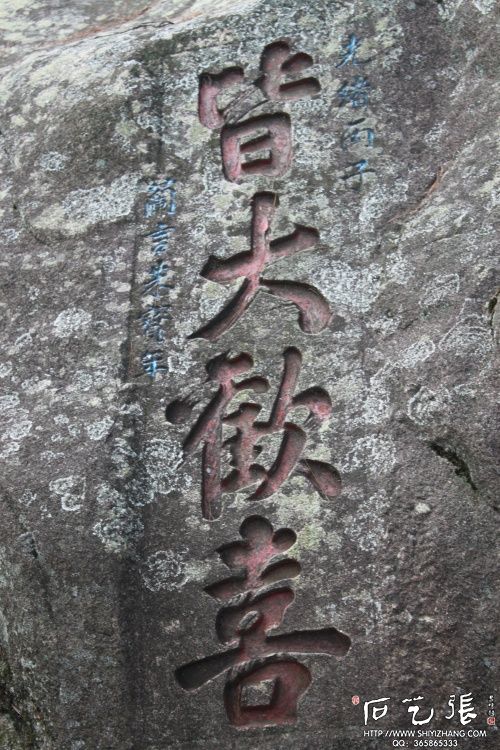 光绪丙子
皆大歡喜
石艺張
HTTP://WWW.SHIYIZHANG.COM
QQ: 365865333